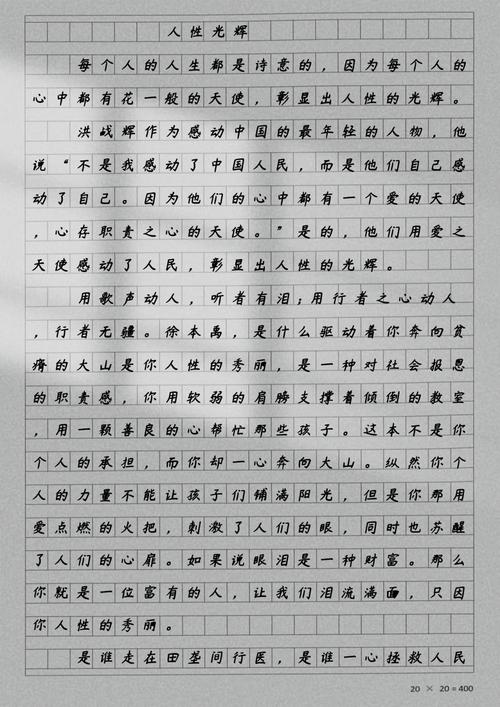 人性光辉
每个人的人生都是诗意的，因为每个人的
心中都有花一般的天使，彰显出人性的光辉。
洪战辉作为感动中国的最年轻的人物，他
说“不是我感动了中国人民，而是他们自己感
动了自己。因为他们的心中都有一个爱的天使
，心存职责之心的天使。”是的，他们用爱之
天使感动了人民，彰显出人性的光辉。
用歌声动人，听者有泪；用行者之心动人
，行者无疆。徐本禹，是什么驱动着你奔向贫
瘠的大山是你人性的秀丽，是一种对社会报恩
的职责感，你用软弱的肩膀支撑着倾倒的教室
，用一颗善良的心帮忙那些孩子。这本不是你
个人的承担，而你却一心奔向大山。纵然你个
人的力量不能让孩子们铺满阳光，但是你那用
爱点燃的火把，刺激了人们的眼，同时也苏醒
了人们的心扉。如果说眼泪是一种财富。那么
你就是一位富有的人，让我们泪流满面，只因
你人性的秀丽。
是谁走在田垄间行医，是谁一心拯救人民
20 × 20 = 400